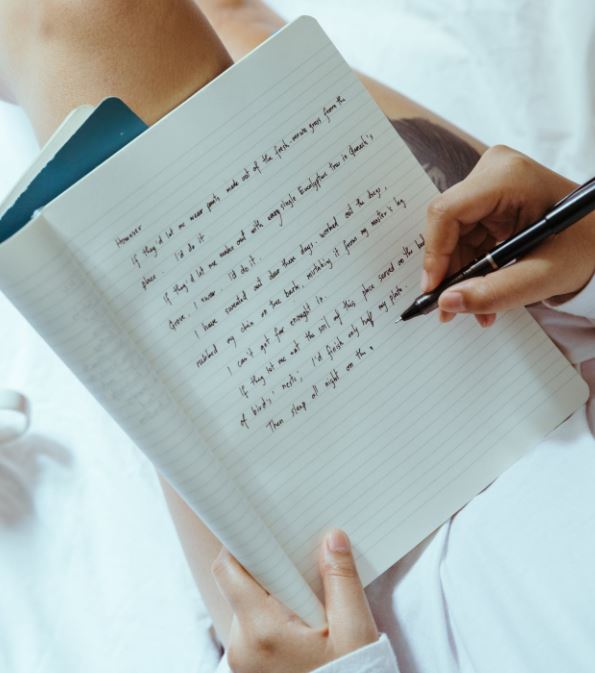 However
If they'd let me wear pants made out of the fresh-woven grass from the
place. I'd do it.
If they'd let me make out with every single Eucalyptus tree in Stanach's
Grove, I swear. I'd do it.
I have sweated out dew these days, walked out the days,
rubbed my chin on tree bark, mistaking it from my master's leg
I can't get far enough in.
If they let me eat the soil of this place served on the bed
of birds' nests; I'd finish only half my plate.
Then sleep all night on the